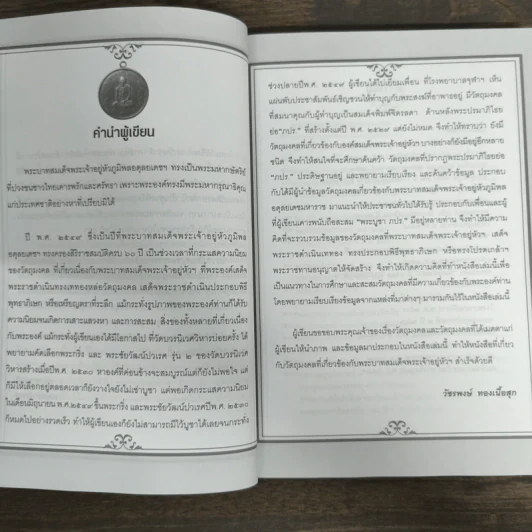 คำนำผู้เขียน
พระบาทสมเด็จพระเจ้าอยู่หัวภูมิพลอดุลยเดชฯ ทรงเป็นพระมหากษัตริย์
ที่ปวงชนชาวไทยเคารพรักและศรัทธา เพราะพระองค์ทรงมีพระมหากรุณาธิคุณ
แก่ประเทศชาติอย่างหาที่เปรียบมิได้
ปี พ.ศ. ๒๕๔๙ ซึ่งเป็นปีที่พระบาทสมเด็จพระเจ้าอยู่หัวภูมิพล
อดุลยเดชฯ ทรงครองสิริราชสมบัติครบ ๖๐ ปี เป็นช่วงเวลาที่กระแสความนิยม
ของวัตถุมงคล ที่เกี่ยวเนื่องกับพระบาทสมเด็จพระเจ้าอยู่หัวฯ ที่พระองค์เสด็จ
พระราชดำเนินทรงเททองหล่อวัตถุมงคล เสด็จพระราชดำเนินประกอบพิธี
พุทธาภิเษก หรือเหรียญตราที่ระลึก แม้กระทั่งรูปภาพของพระองค์ท่านก็ได้รับ
ความนิยมจนเกิดการเสาะแสวงหา และการสะสม สิ่งของทั้งหลายที่เกี่ยวเนื่อง
กับพระองค์ แม้กระทั่งผู้เขียนเองได้มีโอกาสไป ที่วัดบวรนิเวศวิหารบ่อยครั้ง ได้
พยายามคัดเลือกพระกริ่ง และ พระชัยวัฒน์ปวเรศ รุ่น ๒ ของวัดบวรนิเวศ
วิหารสร้างเมื่อปีพ.ศ. ๒๕๓๐ หาองค์ที่ค่อนข้างจะสมบูรณ์แต่ก็ยังไม่พอใจ แต่
ก็มีให้เลือกอยู่ตลอดเวลาก็ยังวางใจยังไม่เช่าบูชา แต่พอเกิดกระแสความนิยม
ในเดือนมิถุนายน พ.ศ.๒๕๔๙ ขึ้นพระกริ่ง และพระชัยวัฒน์ปวเรศปีพ.ศ. ๒๕๓๐
ก็หมดไปอย่างรวดเร็ว ทำให้ผู้เขียนเองก็ยังไม่สามารถมีไว้บูชาได้เลยจนกระทั่ง
ช่วงปลายปีพ.ศ. ๒๕๔๙ ผู้เขียนได้ไปเยี่ยมเพื่อน ที่โรงพยาบาลจุฬาฯ เห็น
แผ่นพับประชาสัมพันธ์เชิญชวนให้ทำบุญกับพระสงฆ์ที่อาพาธอยู่ มีวัตถุมงคล
ที่สมนาคุณกับผู้ทำบุญเป็นสมเด็จพิมพ์จิตรลดา ด้านหลังพระปรมาภิไธย
ย่อ“ภปร.” ที่สร้างตั้งแต่ปี พ.ศ. แต่ยังไม่หมด จึงทำให้ทราบว่า ยังมี
วัตถุมงคลที่เกี่ยวข้องกับองค์สมเด็จพระเจ้าอยู่หัวฯ บางอย่างก็ยังมีอยู่อีกหลาย
ชนิด จึงทำให้สนใจที่จะศึกษาค้นคว้า วัตถุมงคลที่ปรากฏพระปรมาภิไธยย่อ
“ภปร.” ประดิษฐานอยู่ และพยายามเรียบเรียง และค้นคว้าข้อมูล ประกอบ
กับได้มีผู้นำข้อมูลวัตถุมงคลเกี่ยวข้องกับพระบาทสมเด็จพระเจ้าอยู่หัวภูมิพล
อดุลยเดชมหาราช มาแนะนำให้ประชาชนทั่วไปได้รับรู้ ประกอบกับเพื่อนและผู้
ที่ผู้เขียนเคารพนับถือสะสม “พระบูชา ภปร.” มีอยู่หลายท่าน จึงทำให้มีความ
คิดที่จะรวบรวมข้อมูลของวัตถุมงคลที่พระบาทสมเด็จพระเจ้าอยู่หัวฯ เสด็จ
พระราชดำเนินเททอง ทรงประกอบพิธีพุทธาภิเษก หรือทรงโปรดเกล้าฯ
พระราชทานอนุญาตให้จัดสร้าง จึงทำให้เกิดความคิดที่ทำหนังสือเล่มนี้เพื่อ
เป็นแนวทางในการศึกษาและสะสมวัตถุมงคลที่มีความเกี่ยวข้องกับพระองค์ท่าน
โดยพยายามเรียบเรียงข้อมูลจากแหล่งที่มาต่างๆ มารวมกันไว้ในหนังสือเล่มนี้
ผู้เขียนขอขอบพระคุณเจ้าของเรื่องวัตถุมงคลและวัตถุมงคลที่ได้เมตตาแก่
ผู้เขียนให้นำภาพ และข้อมูลมาประกอบในหนังสือเล่มนี้ ทำให้หนังสือที่เกี่ยว
กับวัตถุมงคลที่เกี่ยวข้องกับพระบาทสมเด็จพระเจ้าอยู่หัวฯ สำเร็จด้วยดี
วัชรพงษ์ ทองเนื้อสุก